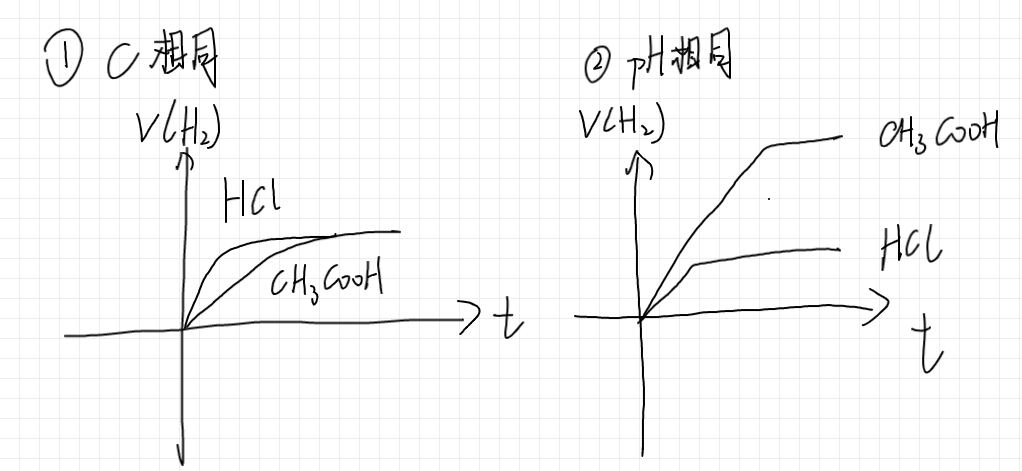 ① C 相同
V(H₂)
HCl
CH₃COOH
t
② pH相同
V(H₂)
CH₃COOH
HCl
t